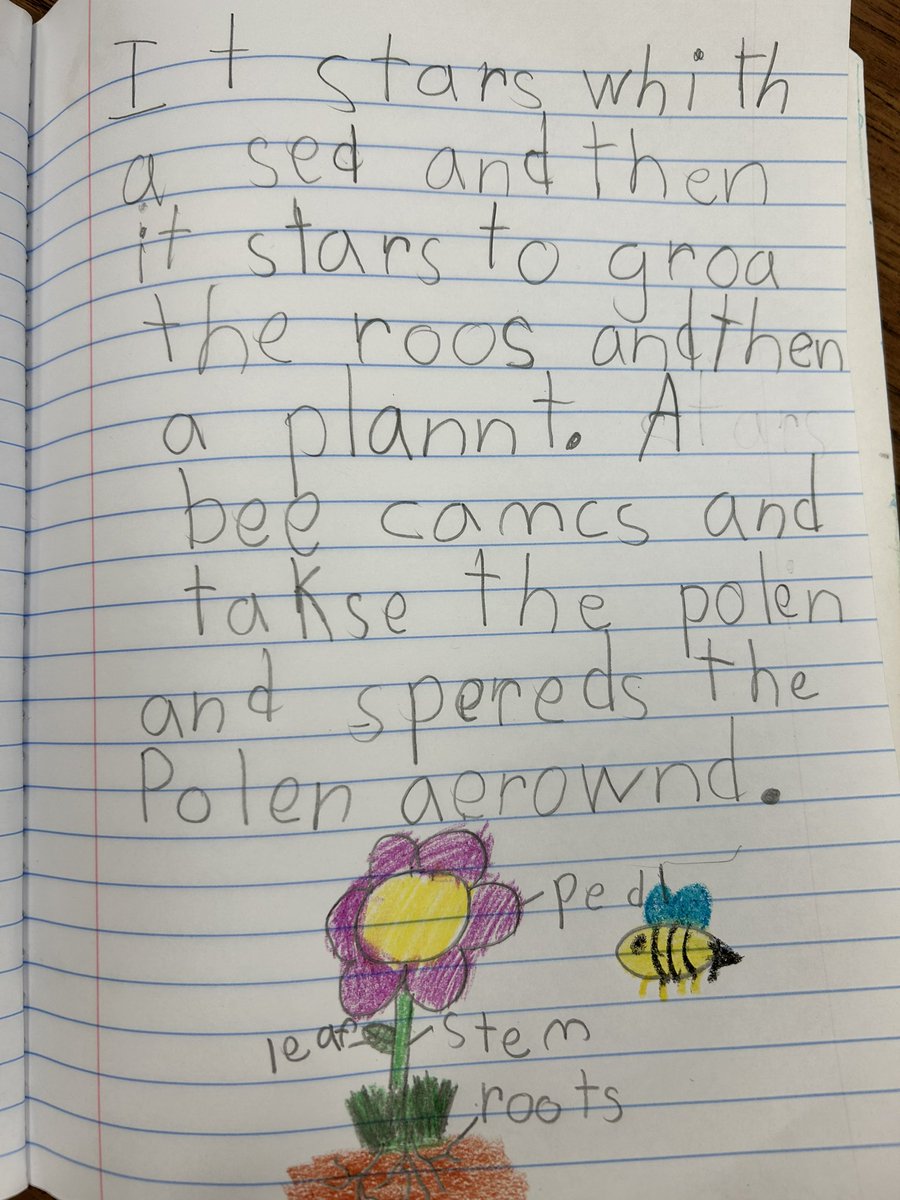 It stars whith
a sed and then
it stars to groa
the roos andthen
a plannt. A
bee camcs and
takse the polen
and spereds the
Polen aerownd.
pedl
leaf stem
roots